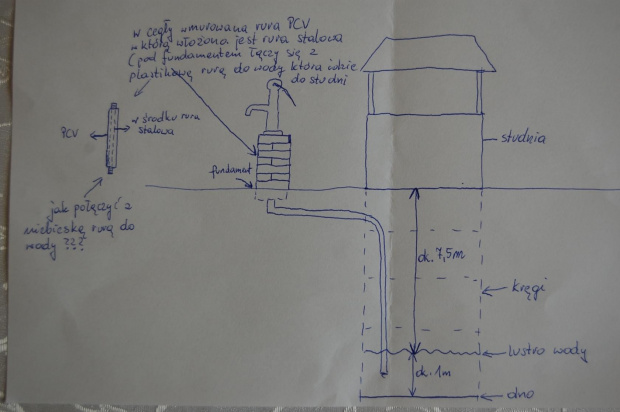 w cegły wmurowana rura PCV
w którą włożona jest rura stalowa
(pod fundamentem łączy się z
plastikową rurą do wody która idzie
do studni
PCV
w środku rura
stalowa
fundament
studnia
jak połączyć z
niebieską rurą do
wody ???
ok. 7,5m
kręgi
lustro wody
ok. 1m
dno